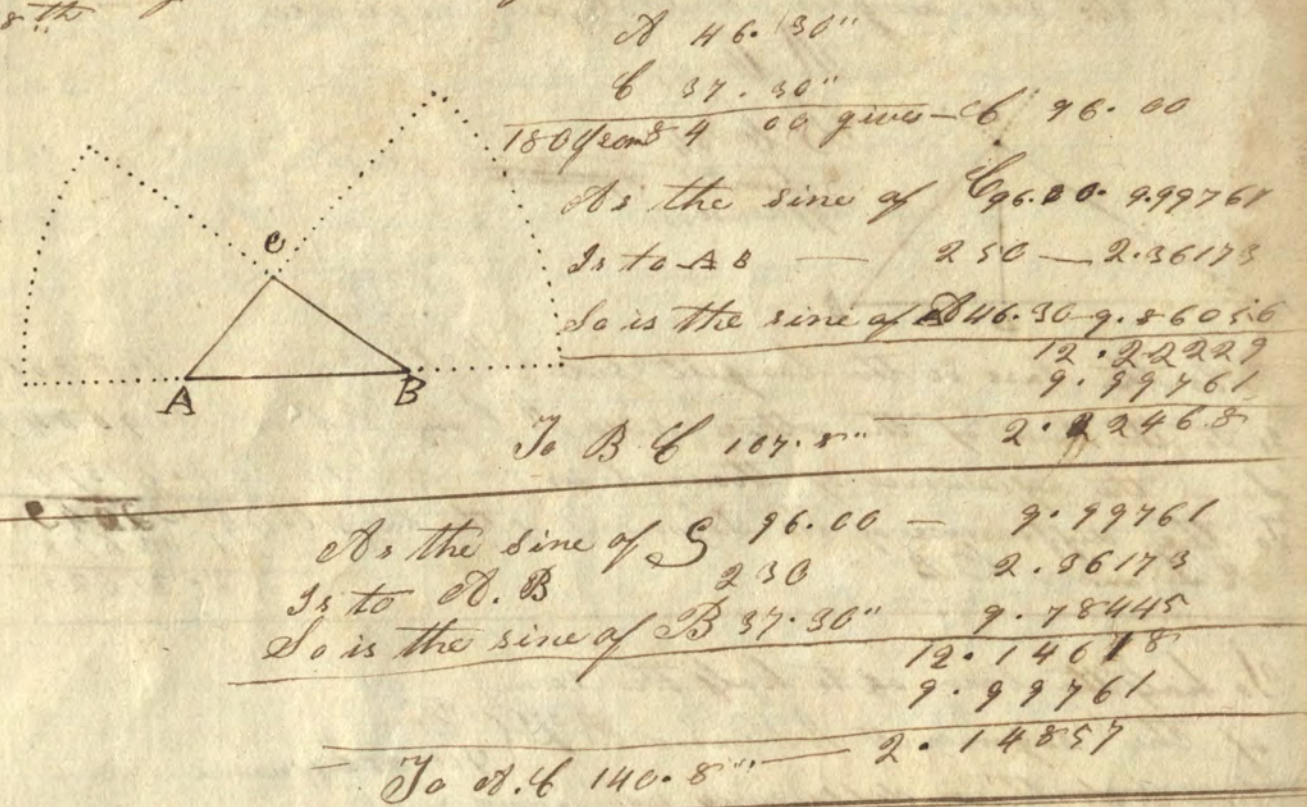 8th
A 46.30"
C 37.30"
180 from 84 00 gives — C 96.00
As the sine of C 96.00. 9.99761
Is to AB — 230 — 2.36173
So is the sine of A 46.30 9.86056
12.22229
9.99761
To B C 167.8" 2.22468
e
A B
As the sine of C 96.00 — 9.99761
Is to A.B 230 2.36173
So is the sine of B 37.30" 9.78445
12.14618
9.99761
To A.C 140.8" — 2.14857